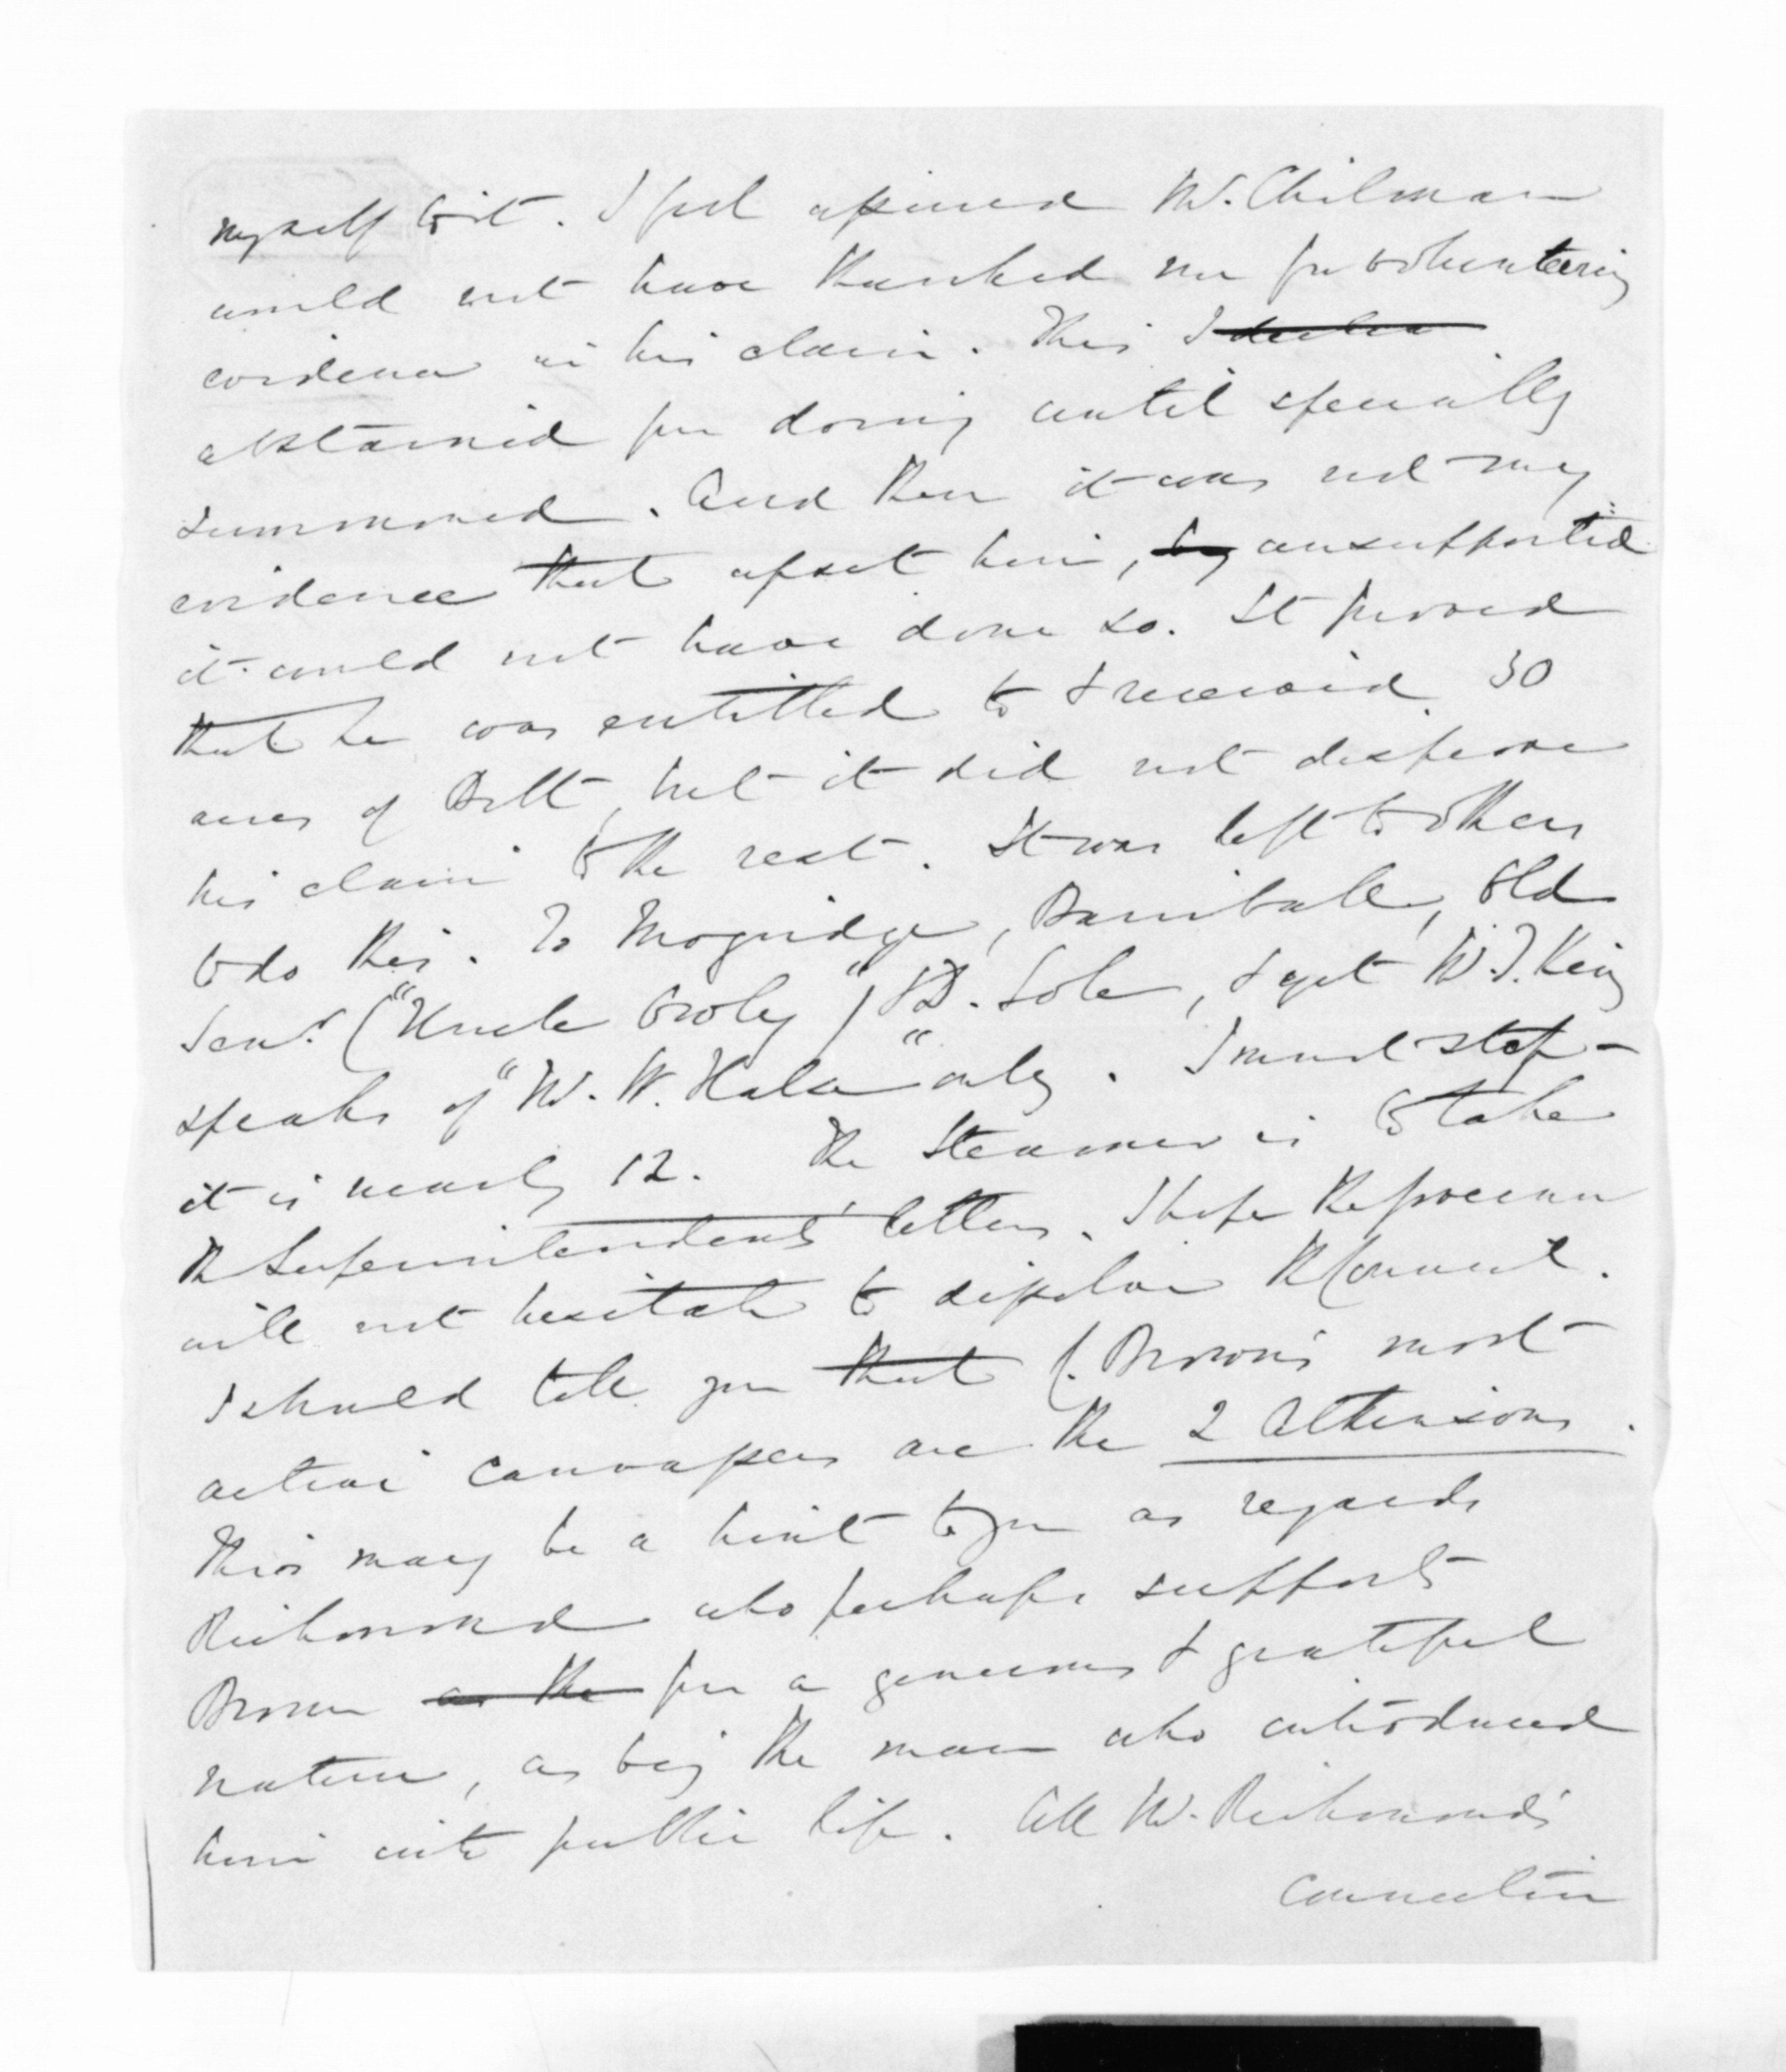 myself to it. I feel assured Mr. Chilman
would not have thanked me for volunteering
evidence in his claim. This I
abstained from doing until specially
summoned. And then it was not my
evidence that upset him, by unsupported
it could not have done so. It proved
that he was entitled to & received 50
acres of Belt, but it did not disprove
his claim to the rest. It was left to others
to do this. To Mogridge, Bassibalt, Old
Senr. ("Uncle Toby") & D. Sole, & yet W.I. King
speaks of "Mr. W. Halse" only. I must stop -
it is nearly 12. The Steamer is to take
the Superintendent's letters. I hope the Governor
will not hesitate to dissolve the Council.
I should tell you that C. Brown's most
active canvassers are the 2 Atkinsons.
This may be a hint to you as regards
Richmond who perhaps supports
Brown as the from a generous & grateful
nature, as being the man who introduced
him into public life. All Mr. Richmond's
connection